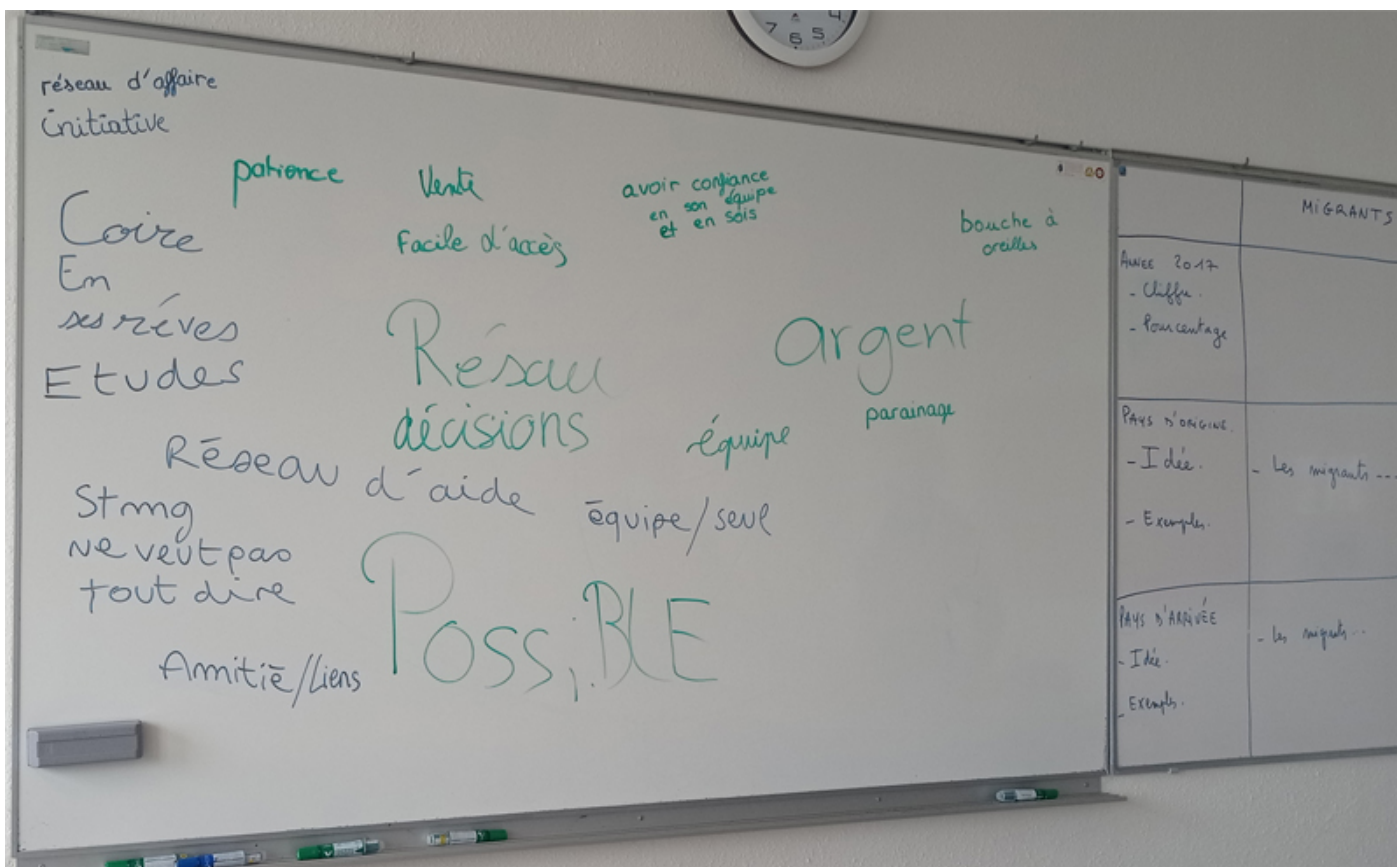 réseau d'affaire
initiative
patience
Vente
Facile d'accès
avoir confiance
en son équipe
et en sois
bouche à
oreilles
Coire
En
ses rêves
Etudes
Résau
décisions
argent
équipe
parainage
Réseau d'aide
équipe/seul
Stmg
ne veut pas
tout dire
PossiBLE
Amitié/Liens
7 6 5 4
MiGRANTS
ANNEE 2017
- Chiffre.
- Pourcentage
PAYS D'ORIGINE.
- Idée.
- Exemples.
- Les migrants ...
PAYS D'ARRIVÉE
- Idée.
- Exemples.
- Les migrants ..